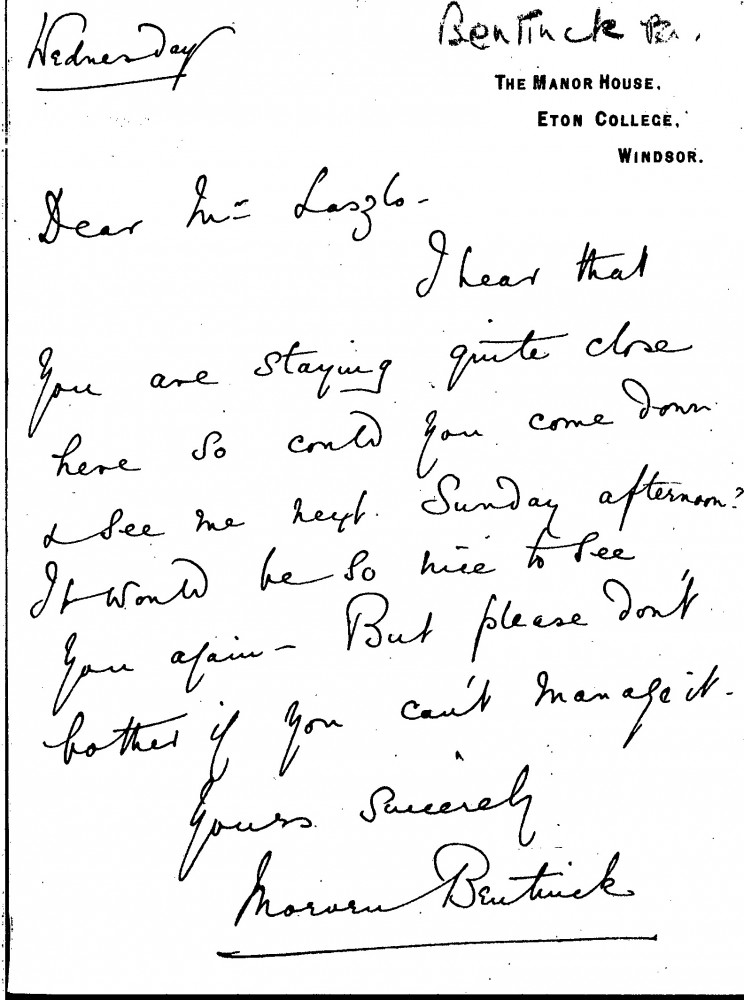 Wednesday
Bentinck
THE MANOR HOUSE,
ETON COLLEGE,
WINDSOR.
Dear Mr Laszlo -
I hear that
you are staying quite close
here so could you come down
& see me next Sunday afternoon?
It would be so nice to see
you again - But please don't
bother if you can't manage it -
Yours sincerely
Morven Bentinck